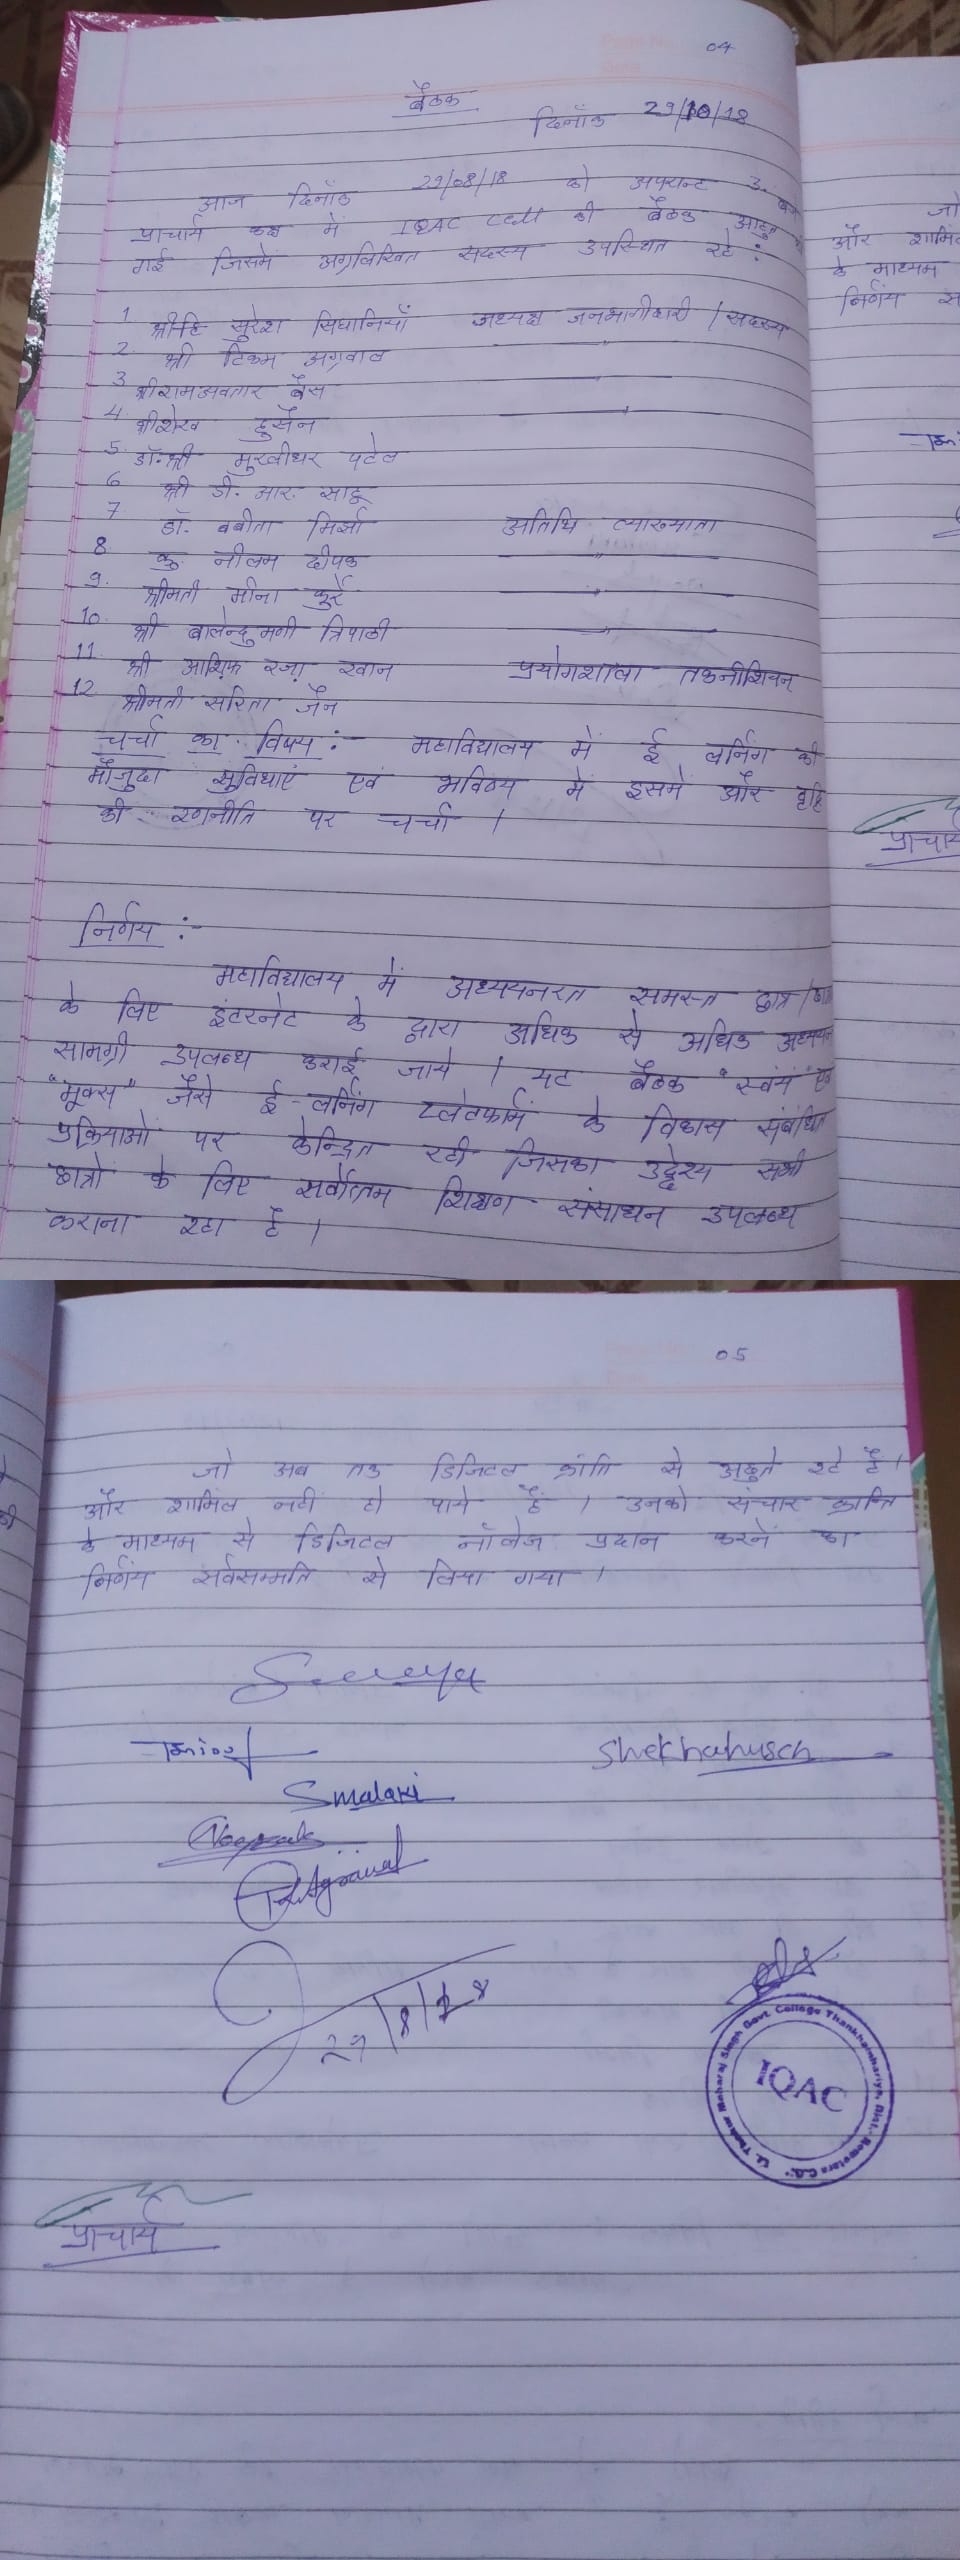 04
बैठक
दिनाँक 29/10/18
आज दिनाँक 29/08/18 को अपरान्ट 3.
प्राचार्य कक्ष में IQAC Cell की बैठक आहुत
गई जिसमे अग्रलिखित सदस्य उपस्थित रहे :
1 सुरेश सिघानियाँ अध्यक्ष जनभागीदारी / सदस्य
2. श्री टिकम अग्रवाल —〃—
3 श्री रामअवतार बैस —〃—
4. श्री शेख हुसैन —〃—
5. डॉ. श्री मुरलीधर पटेल
6 श्री डी. आर. साहू
7 डॉ. बबीता मिर्झा अतिथि व्याख्याता
8 कु. नीलम दीपक —〃—
9. श्रीमती मीना कुर्रे —〃—
10. श्री बालेन्दुमनी त्रिपाठी —〃—
11 श्री आशिफ़ रज़ा खान प्रयोगशाला तकनीशियन
12 श्रीमती सरिता जैन
चर्चा का विषय :- महाविद्यालय में ई लर्निंग की
मौजुदा सुविधाएं एवं भविष्य में इसमे और वृद्दि
की रणनीति पर चर्चा ।
निर्णय :-
महाविद्यालय में अध्ययनरत समस्त छात्र /
के लिए इंटरनेट के द्वारा अधिक से अधिक अध्ययन
सामग्री उपलब्ध कराई जाये । यह बैठक "स्वंय" एवं
"मूक्स" जैसे ई-लर्निंग प्लेटफार्म के विकास संबंधित
प्रक्रियाओं पर केन्द्रित रही जिसका उद्देश्य सभी
छात्रों के लिए सर्वोत्तम शिक्षण संसाधन उपलब्ध
कराना रहा है ।
05
जो अब तक डिजिटल क्रांति से अछुते रहे है ।
और शामिल नहीं हो पाये हैं । उनको संचार क्रान्ति
के माध्यम से डिजिटल नॉलेज प्रदान करनें का
निर्णय सर्वसम्मति से लिया गया ।
Shekhahusen
Smalari
TRAgrawal
29/8/18
Lt. Thakur Maharaj Singh Govt. College Thankhamhariya, Dist.- Bemetara C.G.
IQAC
प्राचार्य